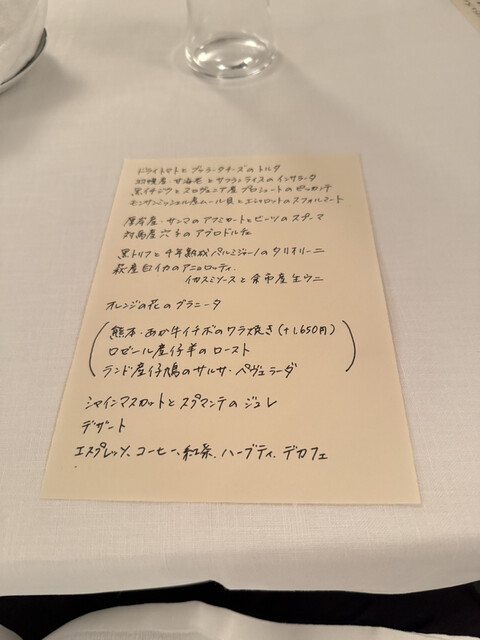 ドライトマトとブッラータチーズのトルタ
羽幌産・甘海老とサフランライスのインサラータ
黒イチジクとスロヴェニア産プロシュートのピッカンテ
モンサンミッシェル産ムール貝とエシャロットのスフォルマート
厚岸産・サンマのアフミカートとビーツのスプーマ
対馬産穴子のアグロドルチェ
黒トリフと千年熟成パルミジャーノのタリオリーニ
萩産白イカのアニョロッティ
イカスミソースと余市産生ウニ
オレンジの花のグラニータ
熊本・あか牛イチボのワラ焼き(+1,650円)
ロゼール産仔羊のロースト
ランド産仔鳩のサルサ・ペヴェラーダ
シャインマスカットとスプマンテのジュレ
デザート
エスプレッソ、コーヒー、紅茶、ハーブティ、デカフェ